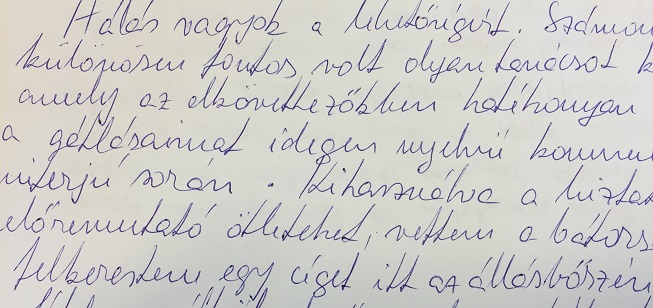 Hálás vagyok a lehetőségért. Számom
különösen fontos volt olyan tanácsot k
amely az elkövetkezőkben hatékonyan
a gátlásaimat idegen nyelvű kommu
interjú során. Kihasználva a bizta
előremutató ötleteket, vettem a bátors
felkerestem egy céget itt az állásbörzén